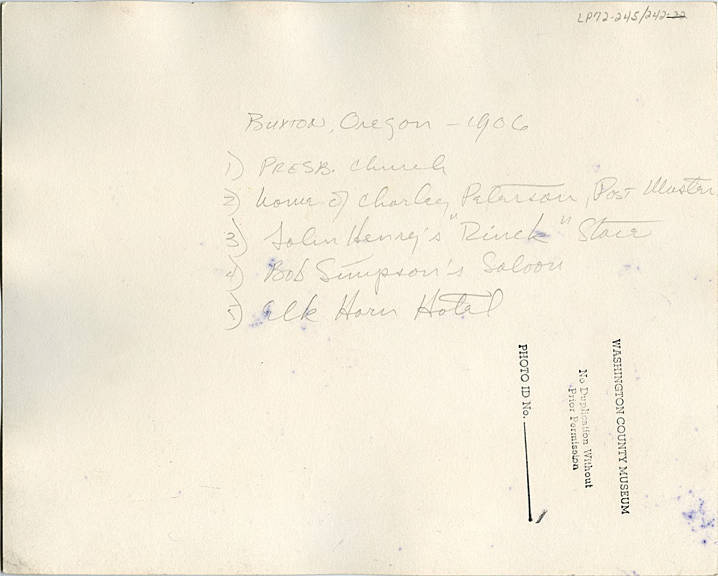 LP72-245/242-22
Buxton, Oregon - 1906
1) PRESB. Church
2) home of Charley Peterson, Post Master
3) John Henry's "Rinck" Store
4) Bob Simpson's Saloon
5) Elk Horn Hotel
WASHINGTON COUNTY MUSEUM
No Duplication Without
Prior Permission
PHOTO ID No.